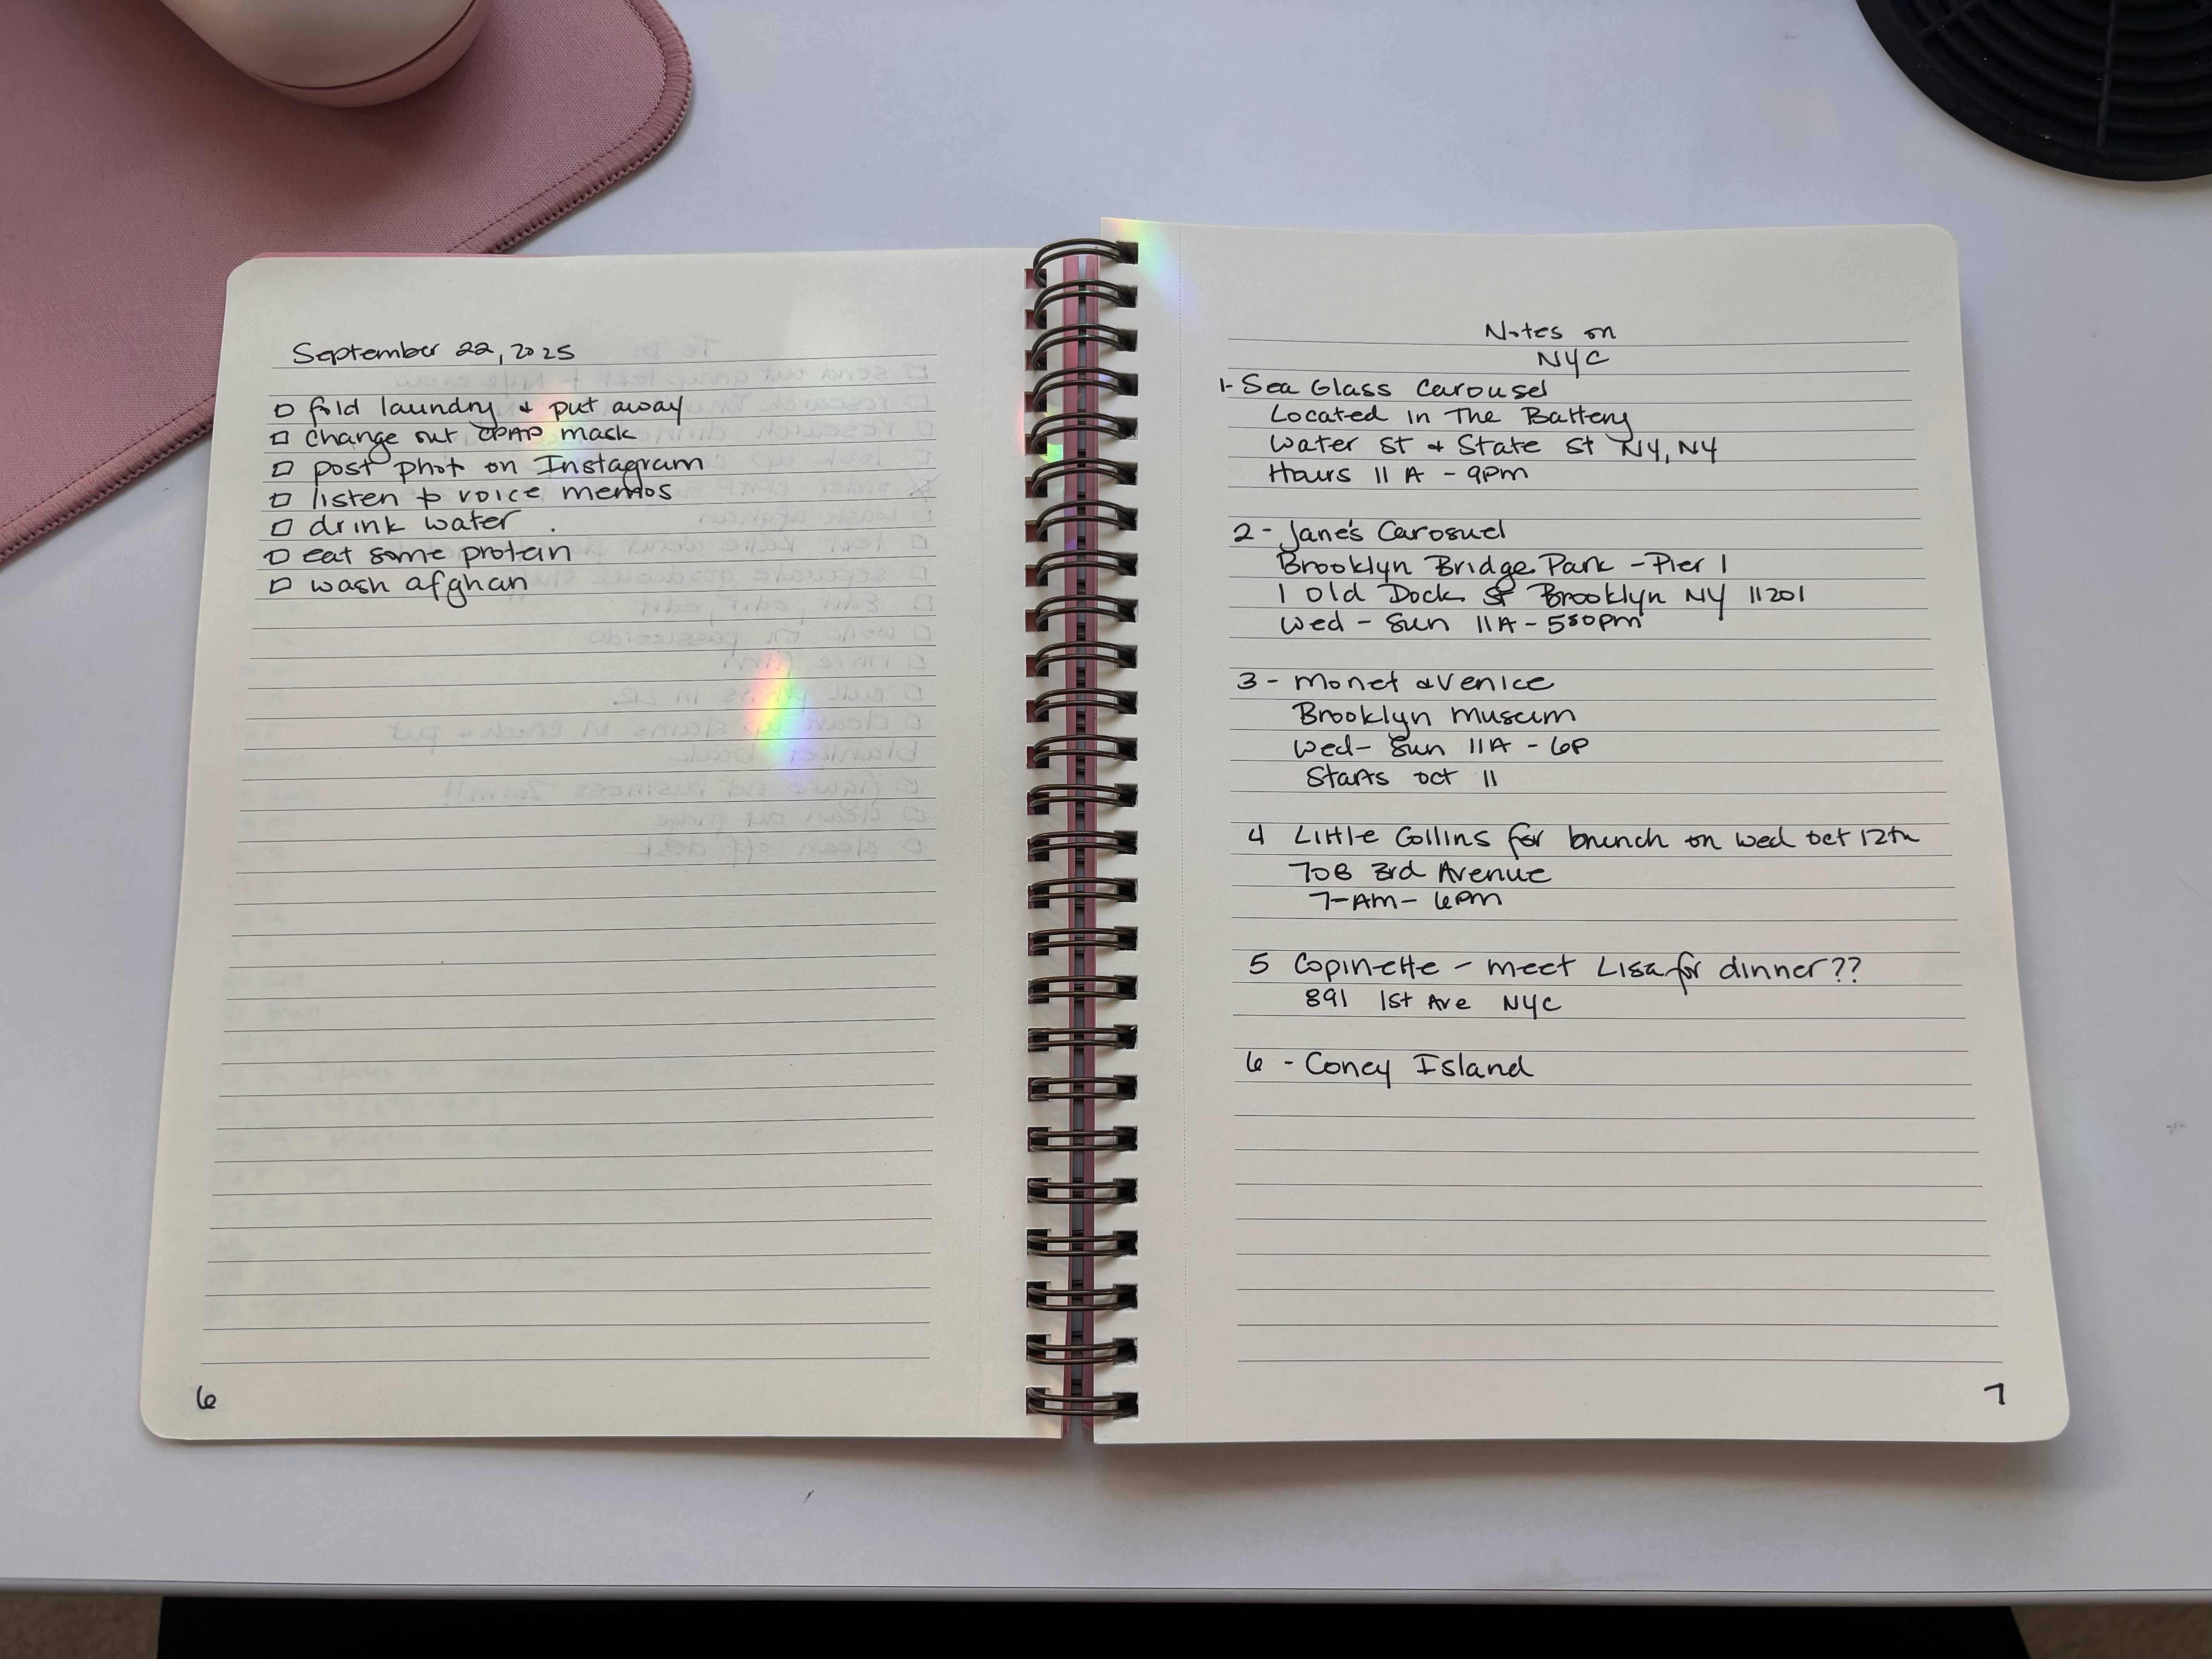 September 22, 2025
fold laundry & put away
change out CPAP mask
post phot on Instagram
listen to voice memos
drink water
eat some protein
wash afghan
6
Notes on
NYC
1- Sea Glass Carousel
Located in The Battery
Water St & State St NY, NY
Hours 11 A - 9pm
2 - Jane's Carosuel
Brooklyn Bridge Park - Pier 1
1 Old Dock St Brooklyn NY 11201
Wed - Sun 11A - 530pm
3 - Monet & Venice
Brooklyn Museum
Wed - Sun 11A - 6P
Starts Oct 11
4 Little Collins for brunch on Wed Oct 12th
708 3rd Avenue
7-AM - 6PM
5 Copinette - meet Lisa for dinner??
891 1st Ave NYC
6 - Coney Island
7